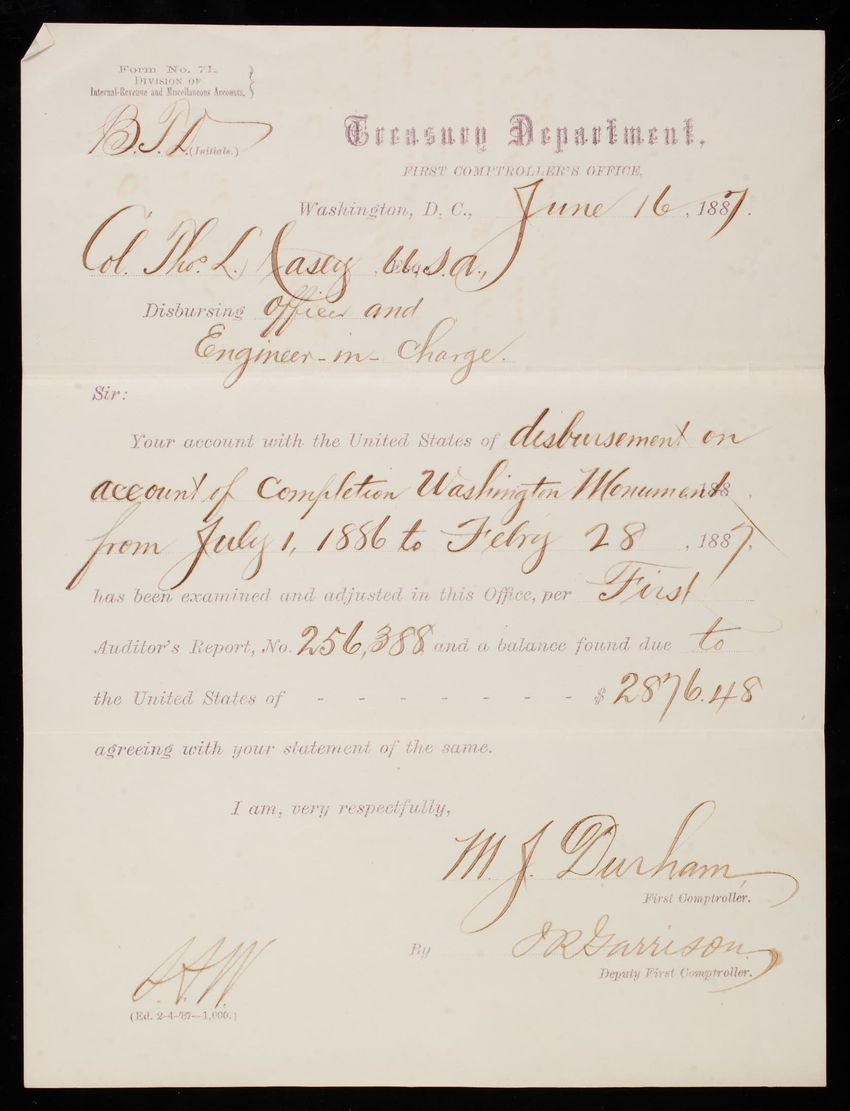 Form No. 71.
DIVISION OF
Internal-Revenue and Miscellaneous Accounts.
B.T.D. (Initials.)
Treasury Department,
FIRST COMPTROLLER'S OFFICE,
Washington, D. C., June 16, 1887.
Col. Thos. L. Casey, Esq., U.S.A.,
Disbursing Officer and
Engineer-in-Charge.
Sir:
Your account with the United States of disbursement on
account of Completion Washington Monument 188 .
from July 1, 1886 to Febry 28, 1887,
has been examined and adjusted in this Office, per First
Auditor's Report, No. 256,388 and a balance found due to
the United States of - - - - - - - $ 2876.48
agreeing with your statement of the same.
I am, very respectfully,
M. J. Durham,
First Comptroller.
By J R Garrison
Deputy First Comptroller.
(Ed. 2-4-'87—1,000.)